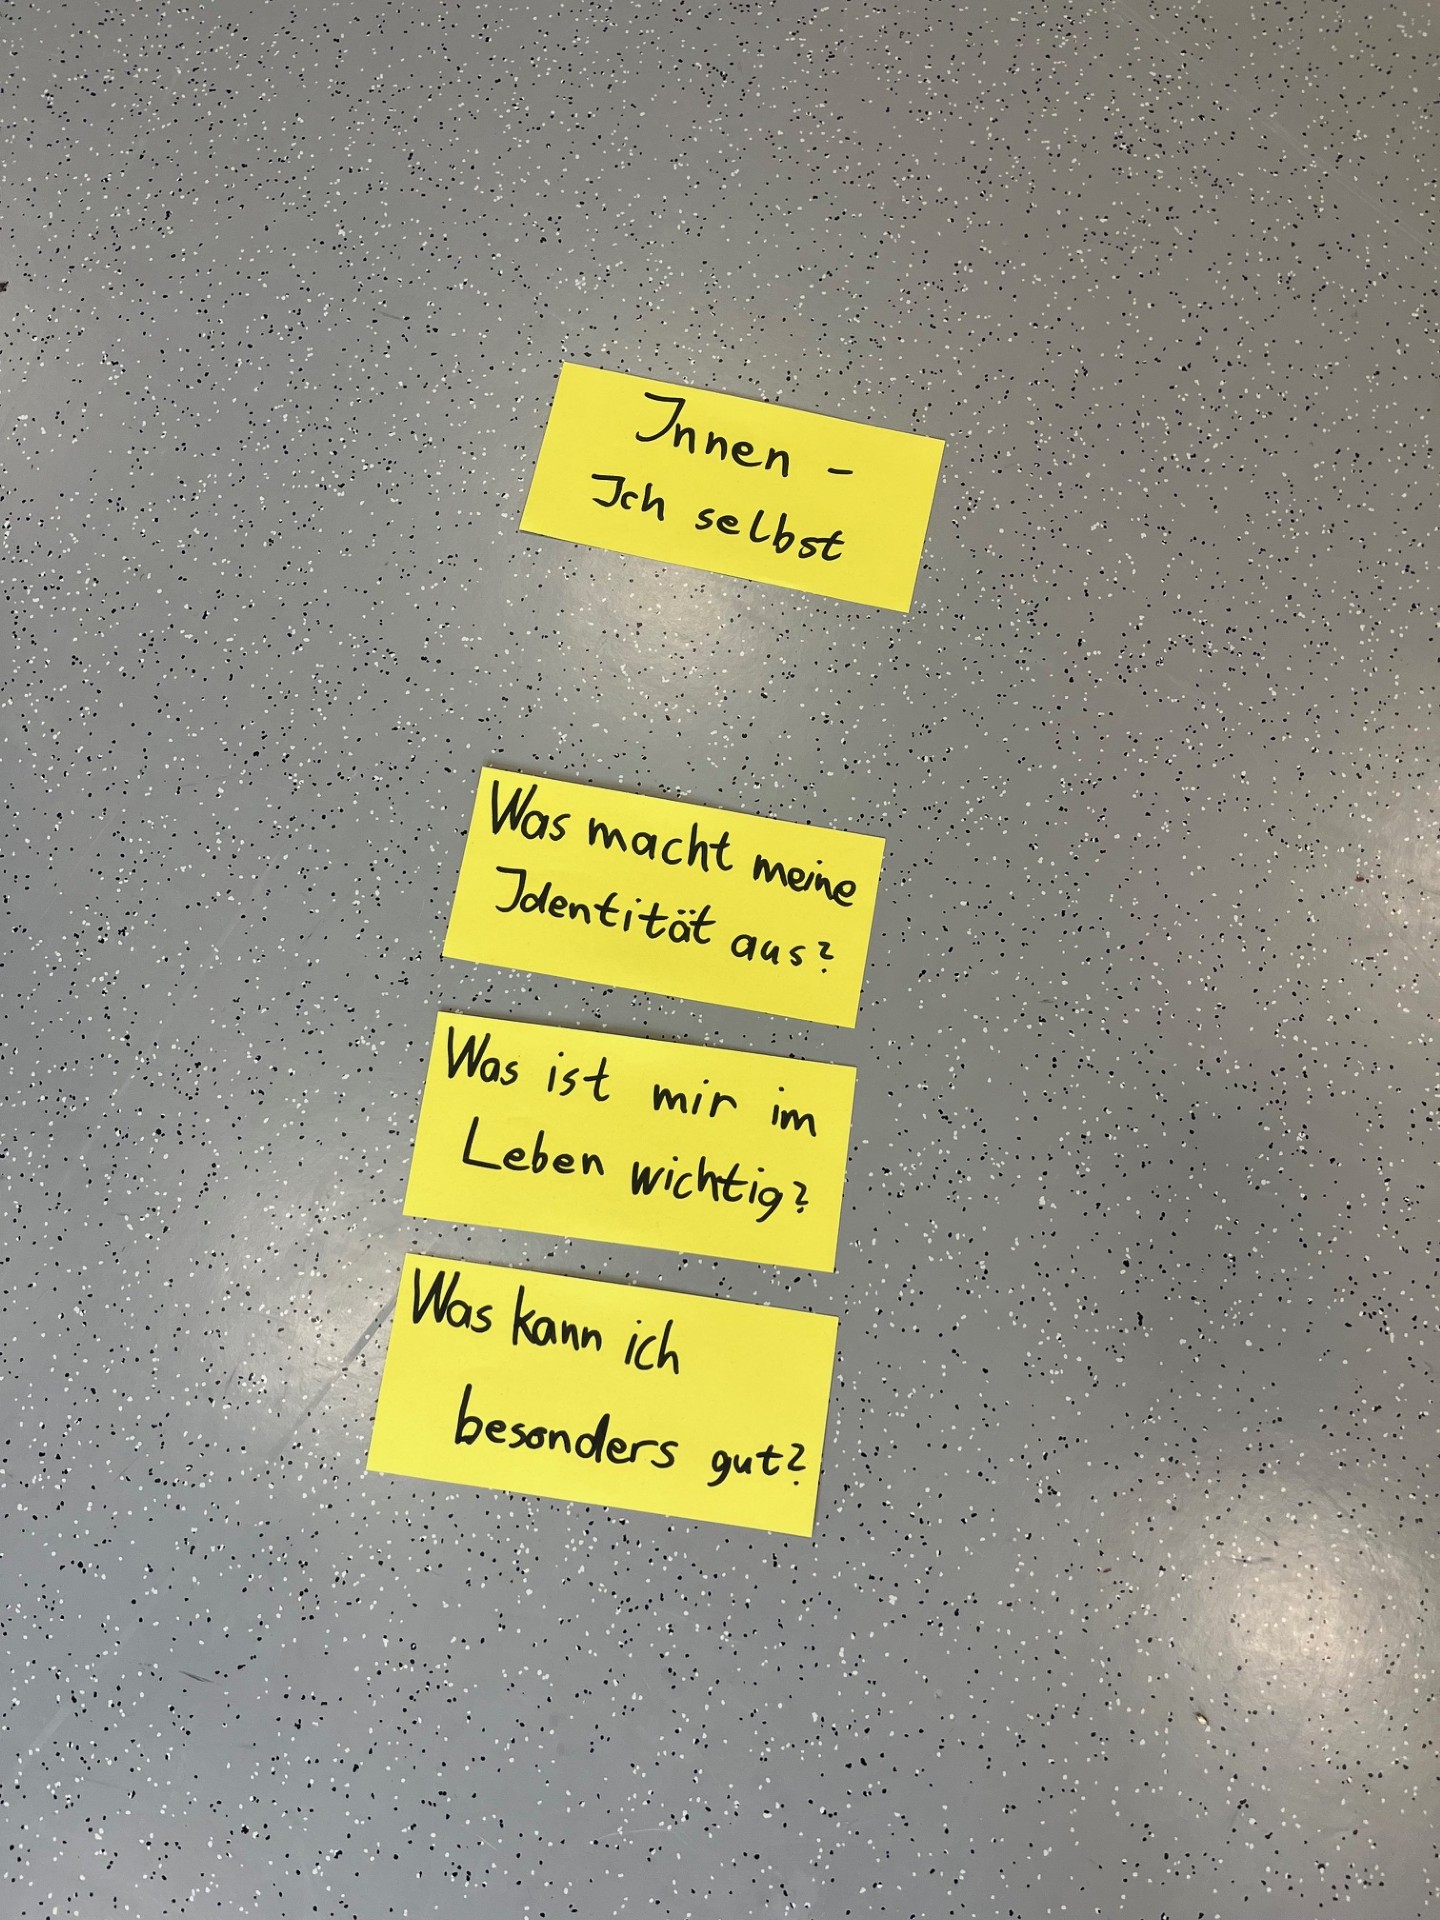 Innen -
Ich selbst
Was macht meine
Identität aus?
Was ist mir im
Leben wichtig?
Was kann ich
besonders gut?